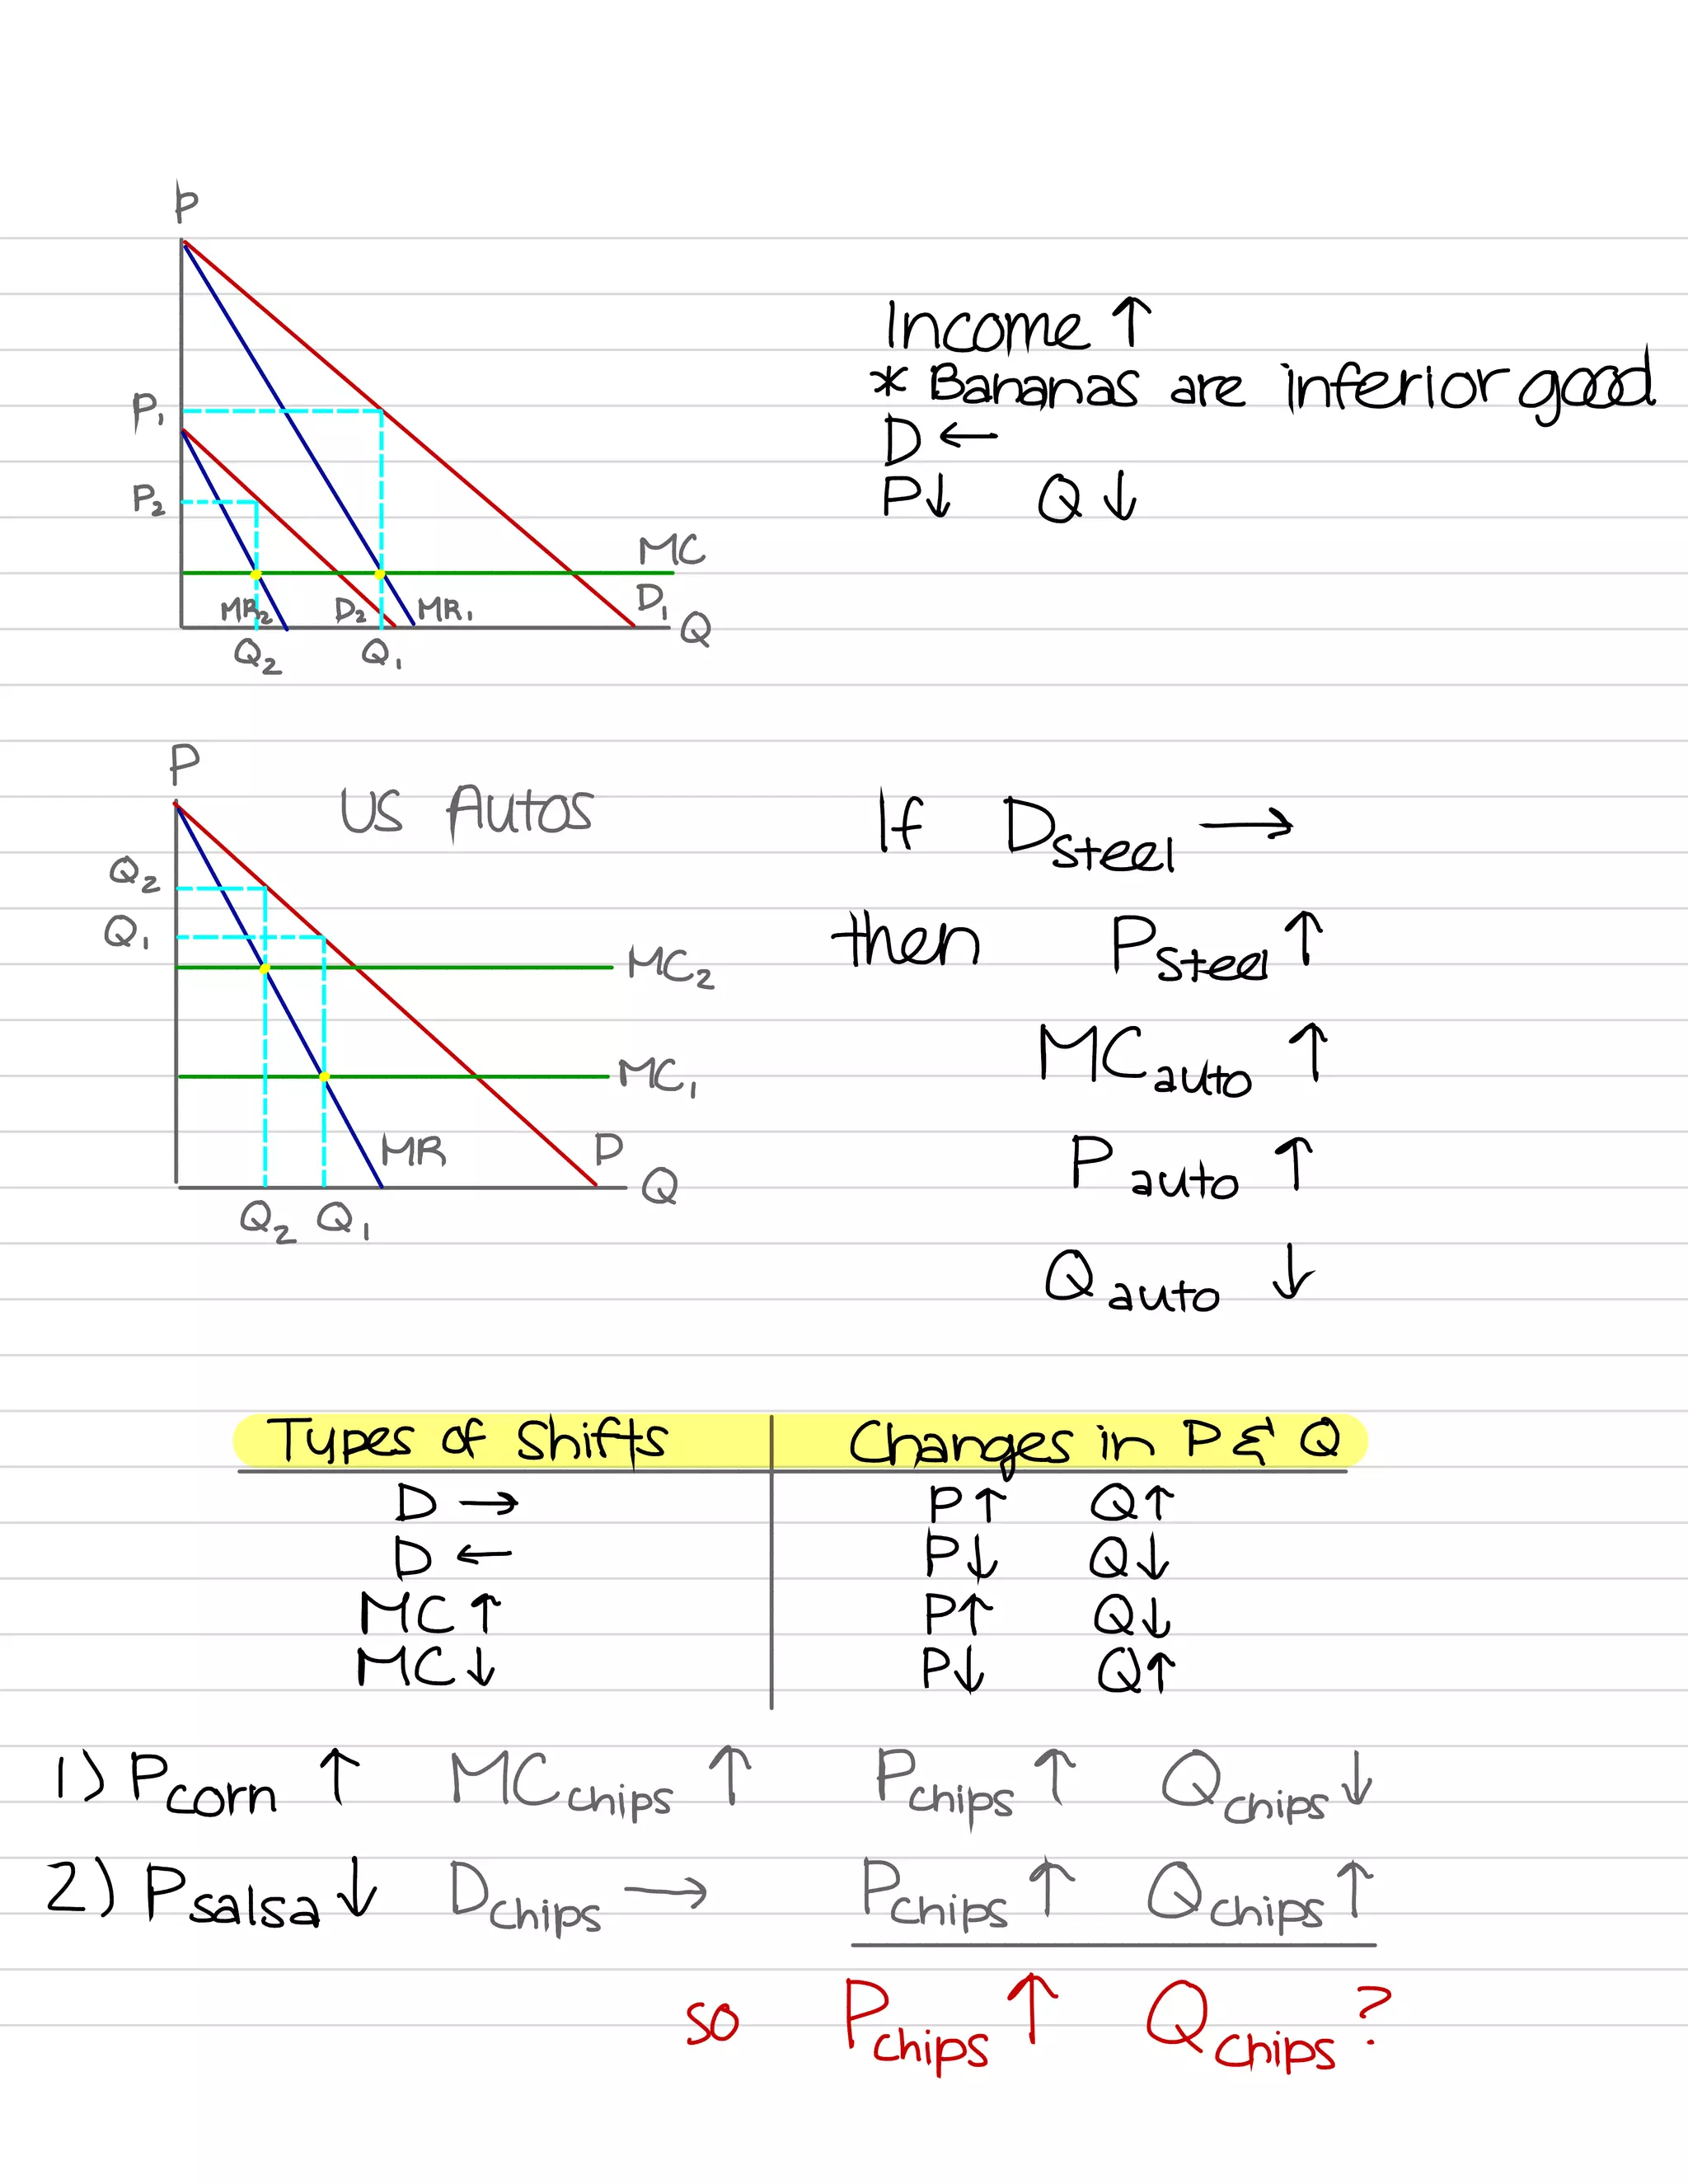 P
P₁
P₂
MC
MR₂ D₂ MR₁ D₁
Q
Q₂ Q₁
Income ↑
* Bananas are inferior good
D ←
P↓ Q↓
P
US Autos
Q₂
Q₁
MC₂
MC₁
MR D
Q
Q₂ Q₁
If D steel →
then P steel ↑
MC auto ↑
P auto ↑
Q auto ↓
Types of Shifts Changes in P & Q
D → P↑ Q↑
D ← P↓ Q↓
MC↑ P↑ Q↓
MC↓ P↓ Q↑
1) P corn ↑ MC chips ↑ P chips ↑ Q chips ↓
2) P salsa ↓ D chips → P chips ↑ Q chips ↑
so P chips ↑ Q chips ?